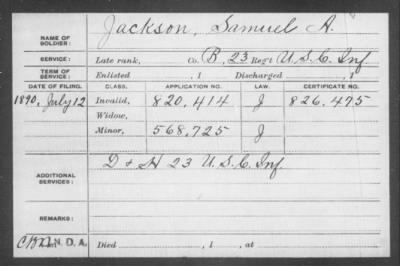 NAME OF SOLDIER: Jackson, Samuel A.
SERVICE: Late rank, Co. B, 23 Reg't U.S.C. Inf.
TERM OF SERVICE: Enlisted , 1 Discharged , 1
DATE OF FILING. CLASS. APPLICATION NO. LAW. CERTIFICATE NO.
1890, July 12 Invalid, 820,414 J 826,475
Widow,
Minor, 568,725 J
ADDITIONAL SERVICES: D + H 23 U.S.C. Inf.
REMARKS:
N. D. A. Died , 1 , at